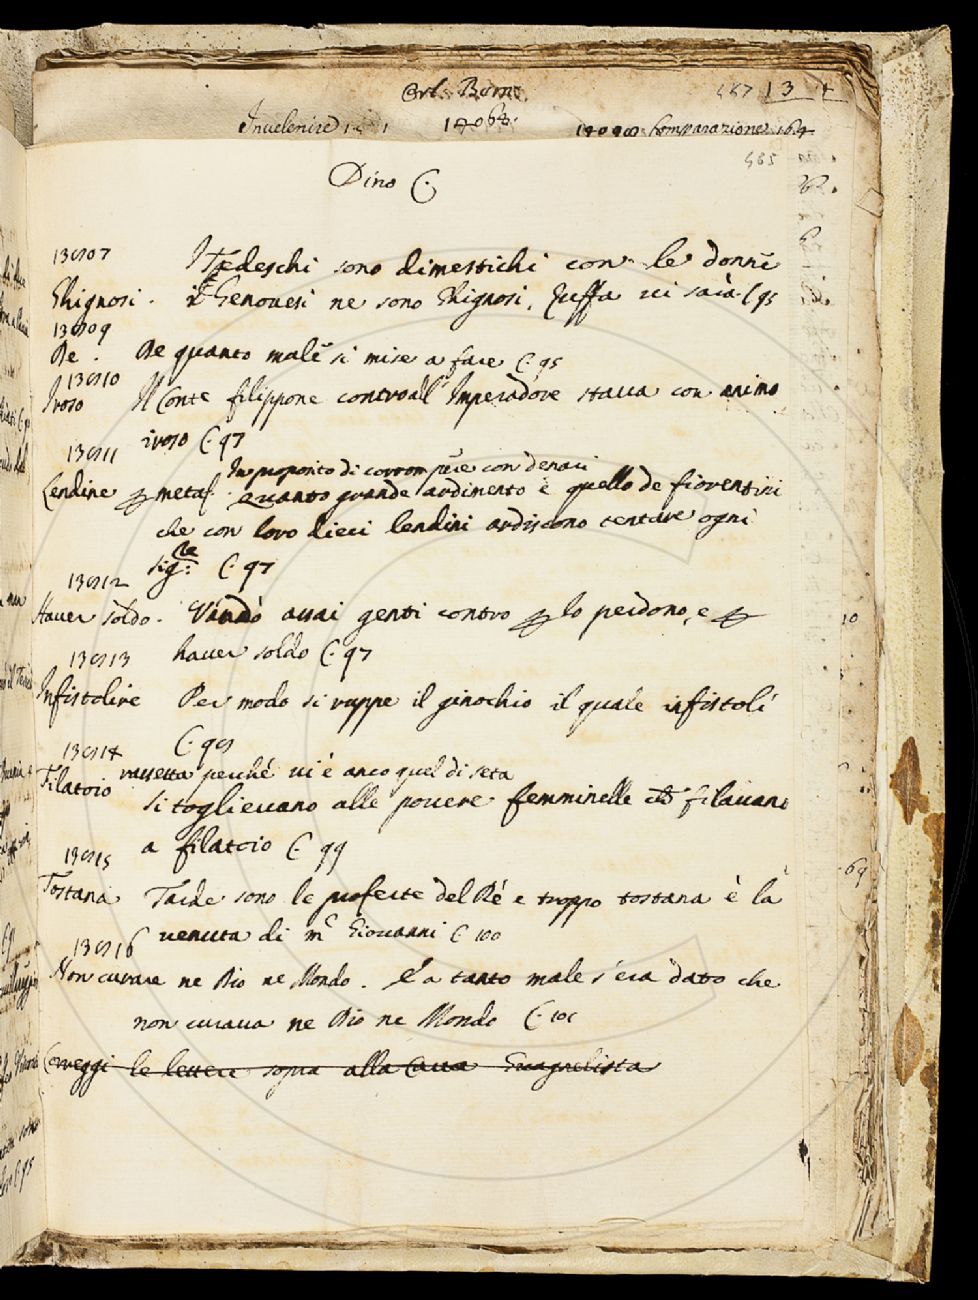 Orl.
487 13
Invelenire
14064.
Comparazione 164
485
Dino C.
13007
I Tedeschi sono dimestichi con le donne
Thignosi. i Genovesi ne sono Thignosi, Zuffa vi sarà C 95
13009
Re. Re quanto male si mise a fare C. 95
13010
Iroso Il Conte filippone controall' Imperadore stava con animo
iroso C. 97
13011
In proposito di corrompere con denari
Lendine metaf. Quanto grande ardimento è quello de fiorentini
che con loro dieci lendini ardiscono tentare ogni
sig:re C. 97
13012
Haver soldo. Mandò assai genti contro lo perdono, e
haver soldo C. 97
13013
Infistolire Per modo si ruppe il ginochio il quale infistolì
C. 98
13014
rassetta perché vi è anco quel di seta
Filatoio si toglievano alle povere femminelle che filavano
a filatoio C. 99
13015
Tostana Tarde sono le proferte del Ré e troppo tostana è la
venuta di m. Giovanni C 100
13016
Non curare ne Dio ne Mondo. E a tanto male s'era dato che
non curava ne Dio ne Mondo C. 101
Correggi le lettere sopra alla Cassa Evagnelista
69